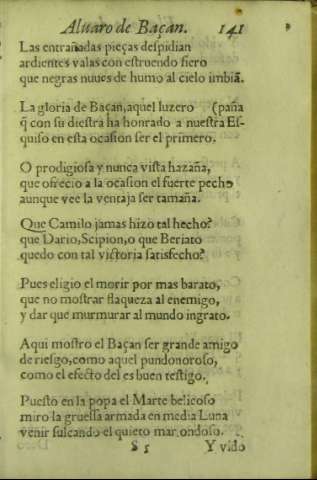 Aluaro de Baçan. 141
Las entrañadas pieças despidian
ardientes valas con estruendo fiero
que negras nuues de humo al cielo imbiã.
La gloria de Baçan, aquel luzero (paña
q̃ con su diestra ha honrado a nuestra Es-
quiso en esta ocasion ser el primero.
O prodigiosa y nunca vista hazaña,
que ofrecio a la ocasion el fuerte pecho
aunque vee la ventaja ser tamaña.
Que Camilo jamas hizo tal hecho?
que Dario, Scipion, o que Beriato
quedo con tal victoria satisfecho?
Pues eligio el morir por mas barato,
que no mostrar flaqueza al enemigo,
y dar que murmurar al mundo ingrato.
Aqui mostro el Baçan ser grande amigo
de riesgo, como aquel pundonoroso,
como el efecto del es buen testigo.
Puesto en la popa el Marte belicoso
miro la gruessa armada en media Luna
venir sulcando el quieto mar ondoso.
S 5 Y vido